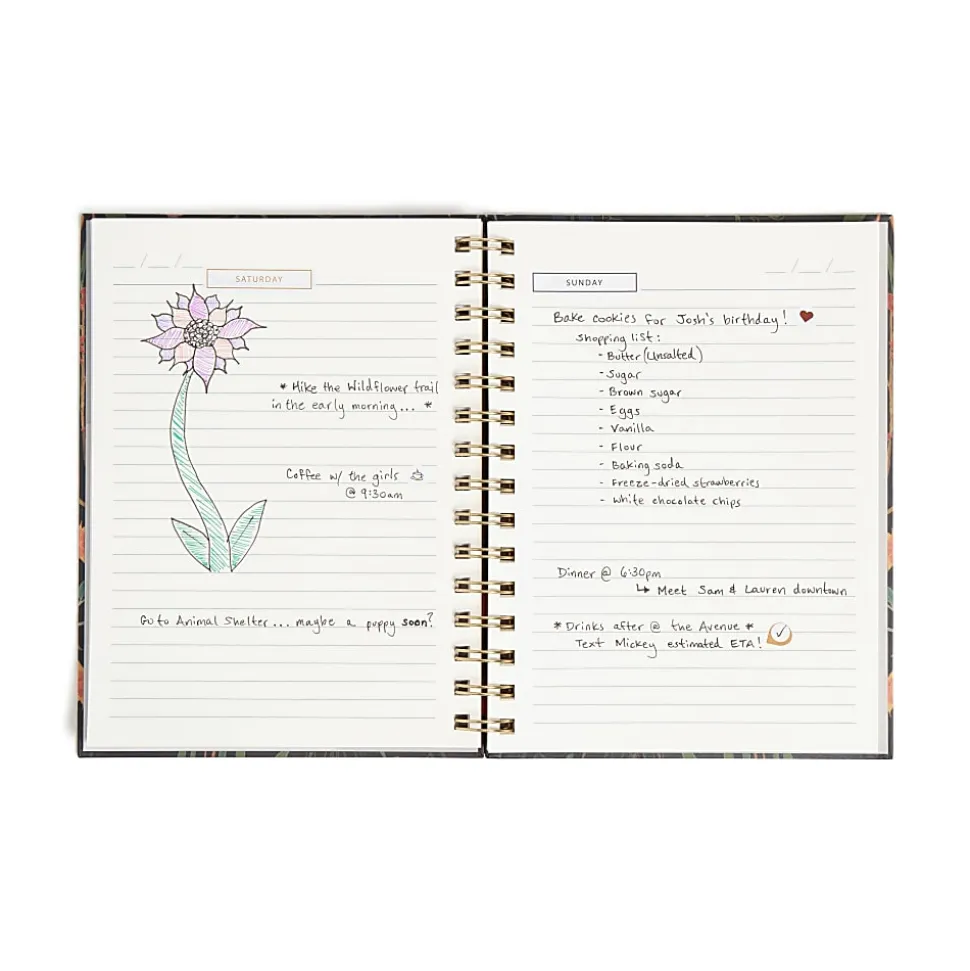 SATURDAY
* Hike the Wildflower trail
in the early morning... *
Coffee w/ the girls
@ 9:30am
Go to Animal Shelter... maybe a puppy soon?
SUNDAY
Bake cookies for Josh's birthday!
Shopping list:
- Butter (Unsalted)
- Sugar
- Brown sugar
- Eggs
- Vanilla
- Flour
- Baking soda
- Freeze-dried strawberries
- White chocolate chips
Dinner @ 6:30pm
↳ Meet Sam & Lauren downtown
* Drinks after @ the Avenue *
Text Mickey estimated ETA!